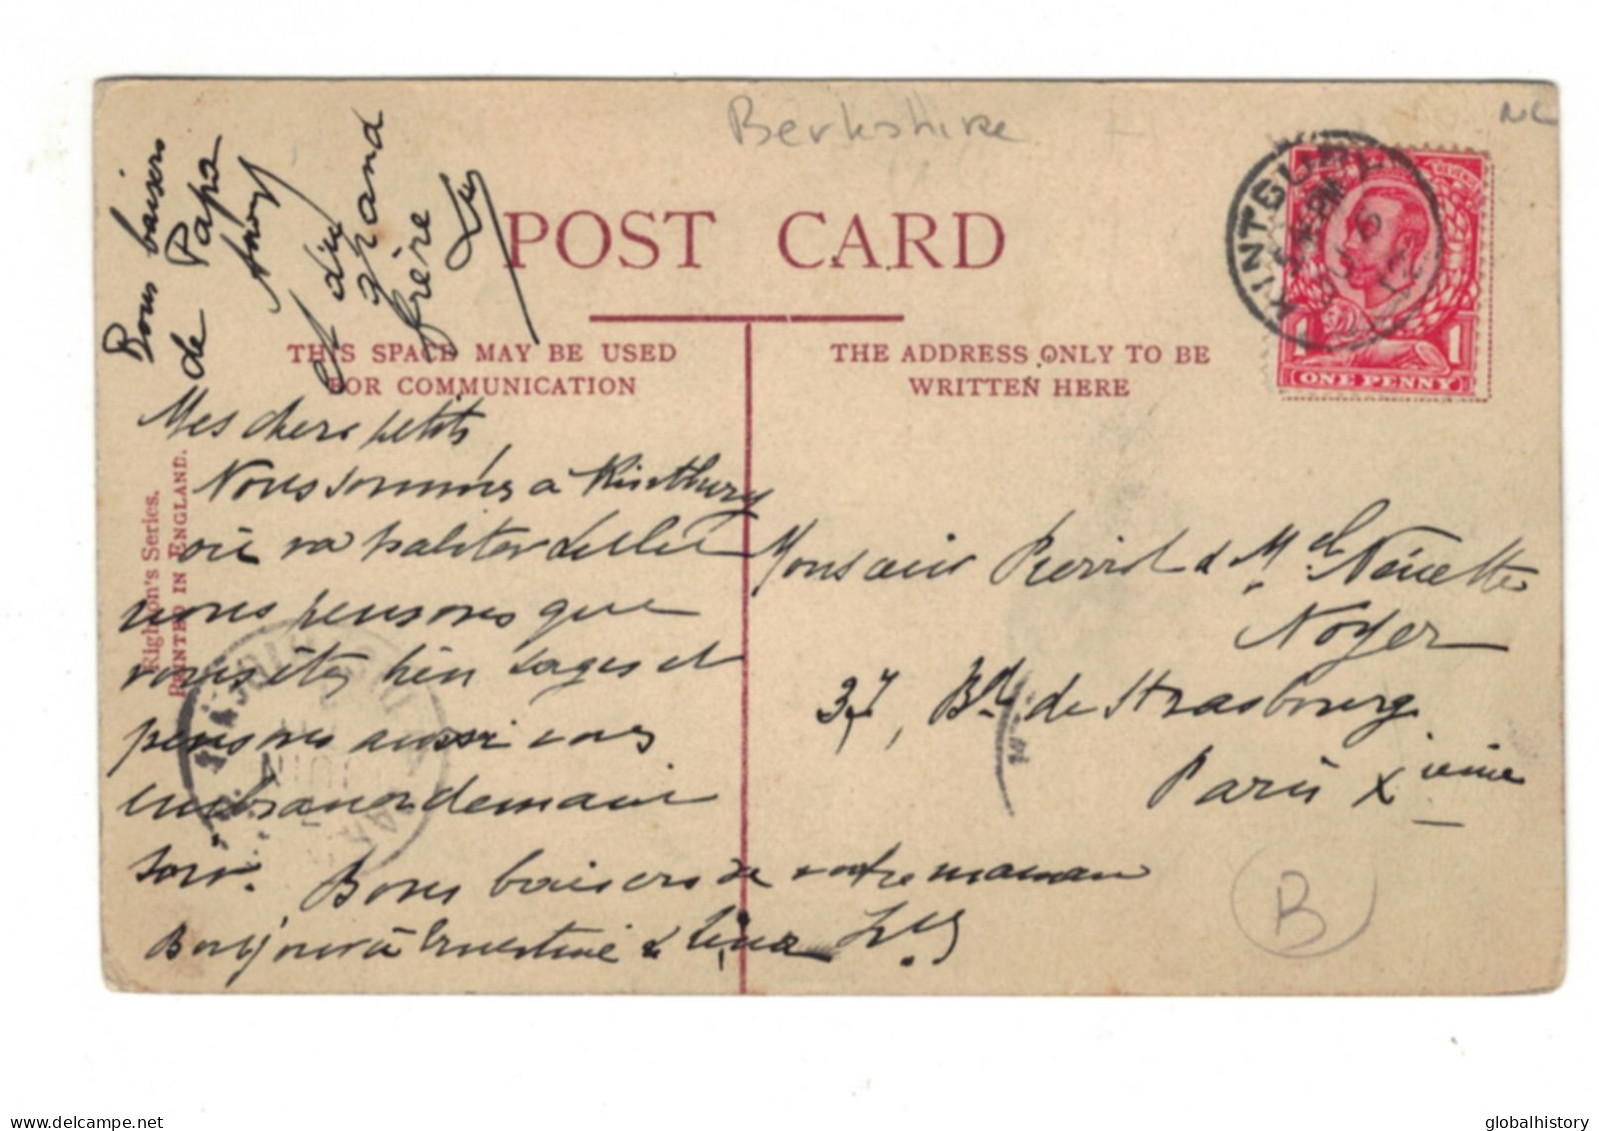 Berkshire
NL
POST CARD
THIS SPACE MAY BE USED
FOR COMMUNICATION
THE ADDRESS ONLY TO BE
WRITTEN HERE
KINTBURY
1 1
ONE PENNY
Bons baisers
de Papa
et du
grand
frère
Mes chers petits
Nous sommes à Kintbury
où va habiter
nous pensons que
vous êtes bien sages et
pensons aussi vous
embrasser demain
soir. Bons baisers de votre maman
Bonjour à Ernestine &
Monsieur Pierrot & Melle Ninette
Noyer
37, Bd de Strasbourg
Paris Xième
B
Righton's Series.
PRINTED IN ENGLAND.
globalhistory